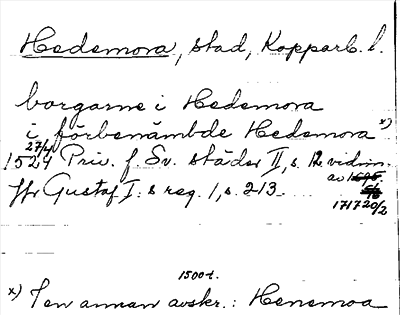 Hedemora, stad, Kopparb. l.
borgarne i Hedemora
i förbenämbde Hedemora x)
27/4
1524 Priv. f. Sv. städer II, s. 12 vidim.
av 1695.
Jfr Gustaf I:s reg. 1, s. 213.
1717 20/2
1500-t.
x) I en annan avskr.: Henemoa